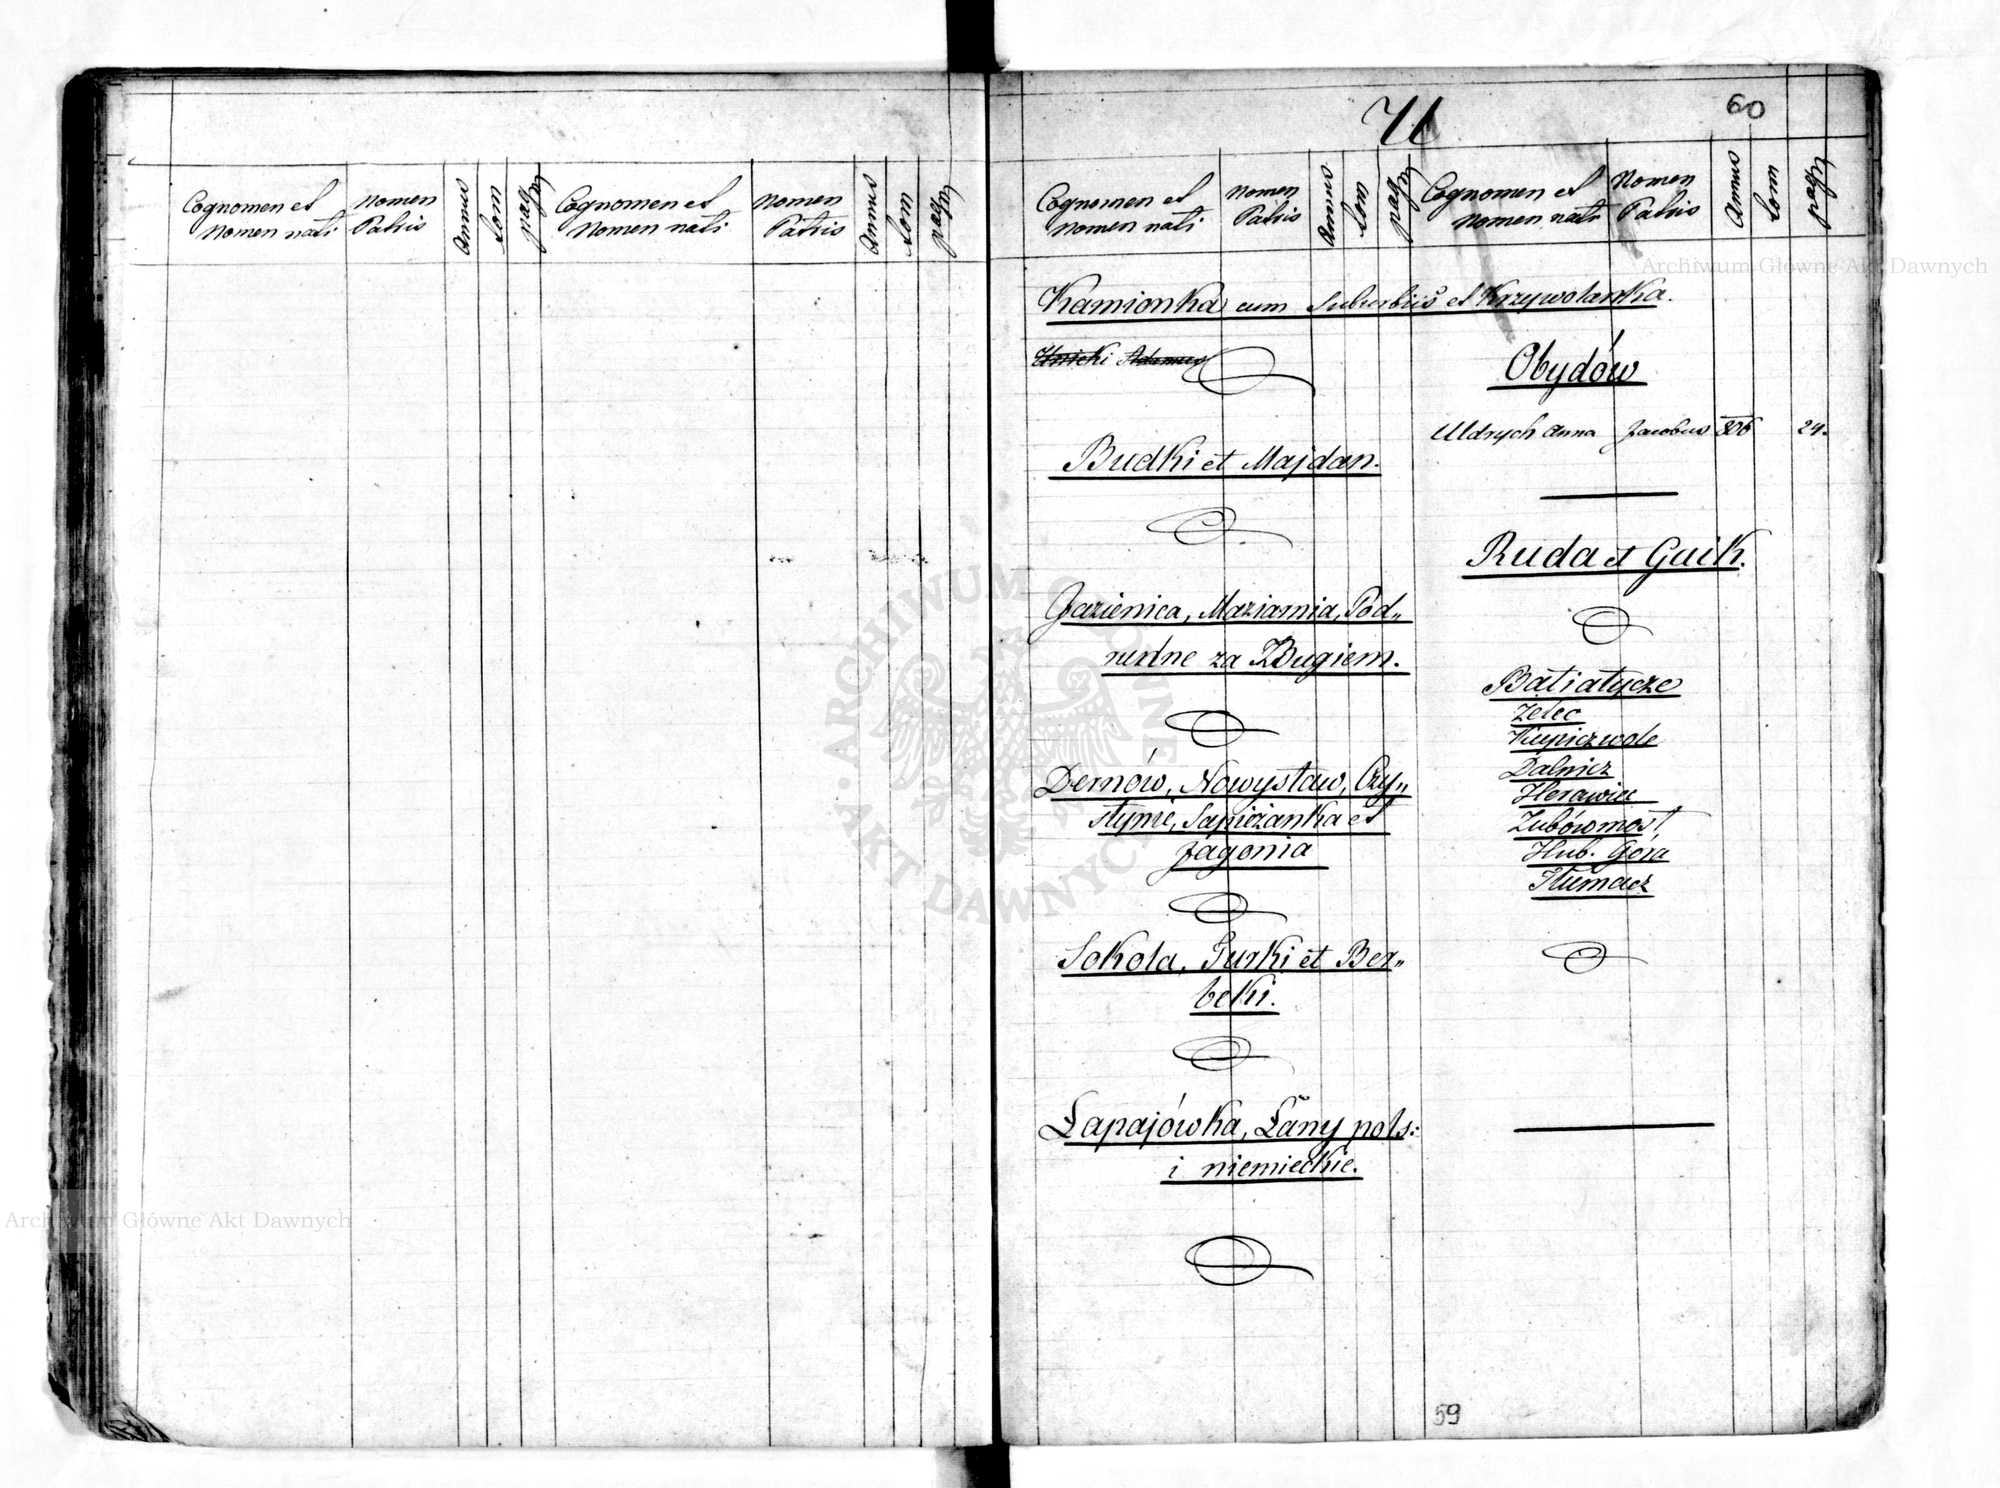 Cognomen et
Nomen nati
Nomen
Patris
Annus
Tom
pag
Cognomen et
Nomen nati
Nomen
Patris
Annus
Tom
pag
U
60
Cognomen et
Nomen nati
Nomen
Patris
Annus
Tom
pag
Cognomen et
Nomen nati
Nomen
Patris
Annus
Tom
pag
Kamionka cum Suburbiis et Krzywolanka.
Unicki Adamus
Budki et Majdan.
Jazienica, Maziarnia, Pod„
za Bugiem.
Dernów, Nowystaw, Czy„
stynie, Sapieżanka et
Jagonia
Sokola, Turki et Ber„
beki.
Łapajówka, Łany pols:
i niemieckie.
Obydów
Uldrych Anna Jacobus 806 24.
Ruda et Gaik.
Batiatycze
Żelec
Kupiczwole
Dalnicz
Herawiec
Zubówmost
Hub. Gora
Tłumacz
59
ARCHIWUM GŁÓWNE AKT DAWNYCH
Archiwum Główne Akt Dawnych
Archiwum Główne Akt Dawnych